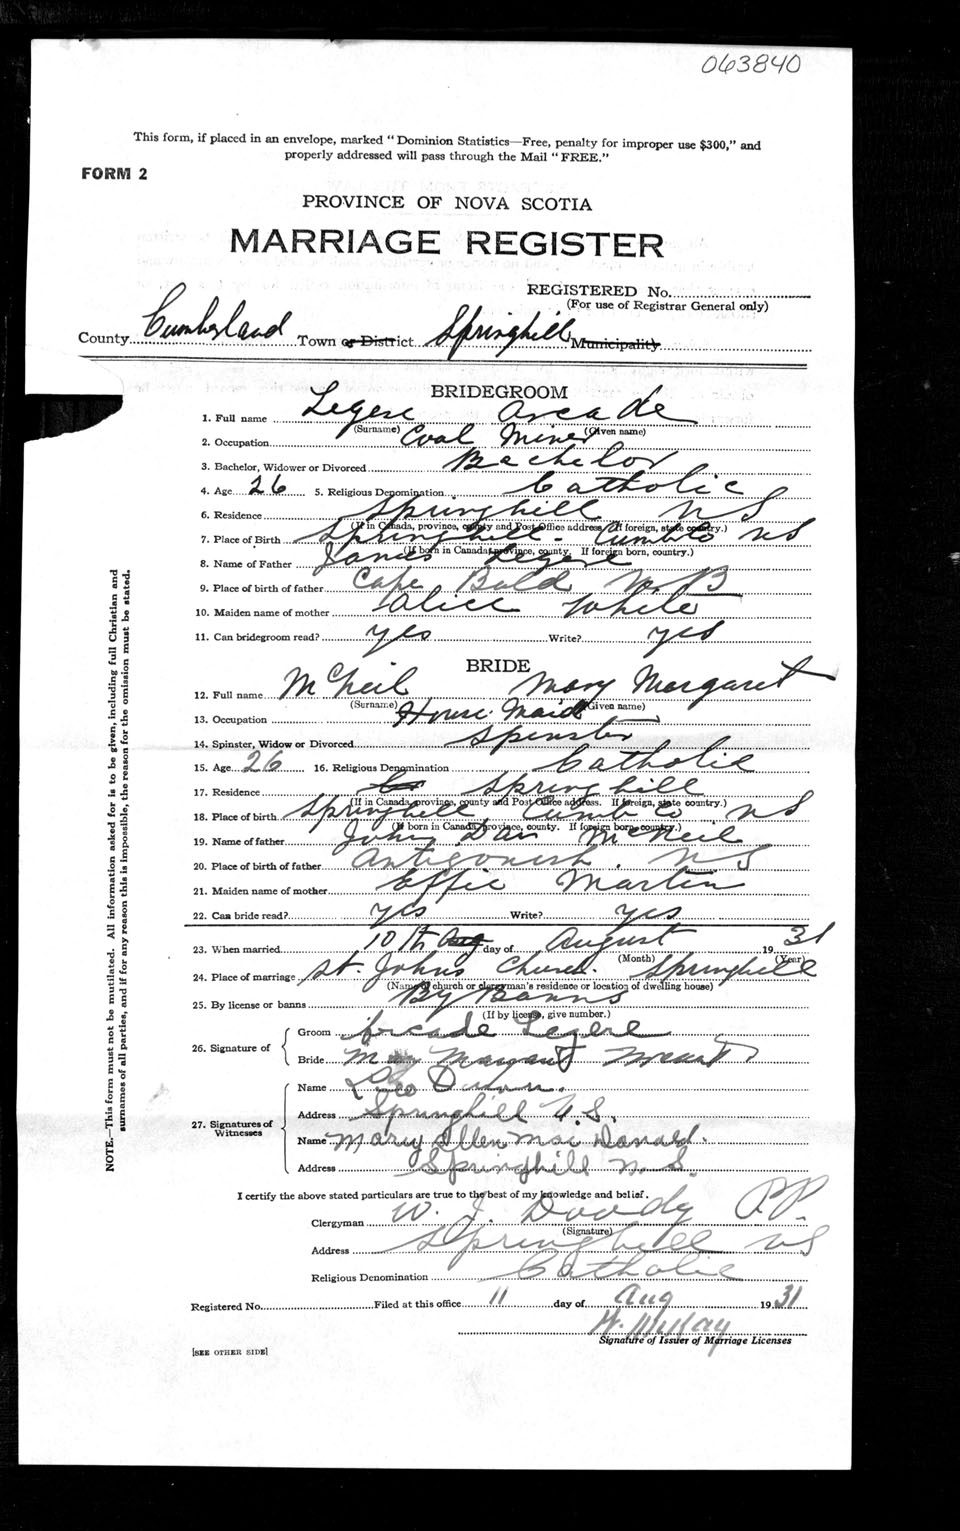 063840
This form, if placed in an envelope, marked "Dominion Statistics—Free, penalty for improper use $300," and
properly addressed will pass through the Mail "FREE."
FORM 2
PROVINCE OF NOVA SCOTIA
MARRIAGE REGISTER
REGISTERED No.
(For use of Registrar General only)
County Cumberland Town or District Springhill Municipality
BRIDEGROOM
1. Full name Legere Arcade
(Surname) (Given name)
2. Occupation Coal Miner
3. Bachelor, Widower or Divorced Bachelor
4. Age 26 5. Religious Denomination Catholic
6. Residence Springhill NS
(If in Canada, province, county and Post Office address. If foreign, state country.)
7. Place of Birth Springhill - Cumb Co NS
(If born in Canada, province, county. If foreign born, country.)
8. Name of Father James Legere
9. Place of birth of father Cape Bald N.B
10. Maiden name of mother Alice White
11. Can bridegroom read? yes Write? yes
BRIDE
12. Full name McNeil Mary Margaret
(Surname) (Given name)
13. Occupation House Maid
14. Spinster, Widow or Divorced Spinster
15. Age 26 16. Religious Denomination Catholic
17. Residence Springhill
(If in Canada, province, county and Post Office address. If foreign, state country.)
18. Place of birth Springhill Cumb Co. NS
(If born in Canada, province, county. If foreign born, country.)
19. Name of father John Dan McNeil
20. Place of birth of father Antigonish. NS
21. Maiden name of mother Effie Martin
22. Can bride read? yes Write? yes
23. When married 10th Aug day of August 1931
(Month) (Year)
24. Place of marriage St. Johns Church. Springhill
(Name of church or clergyman's residence or location of dwelling house)
25. By license or banns By Banns
(If by license, give number.)
26. Signature of
Groom Arcade Legere
Bride Mary Margaret
27. Signatures of Witnesses
Name Leo Dunn.
Address Springhill N.S.
Name Mary Ellen MacDonald.
Address Springhill N.S.
I certify the above stated particulars are true to the best of my knowledge and belief.
Clergyman W. J. Doody P.P.
(Signature)
Address Springhill NS
Religious Denomination Catholic
Registered No. Filed at this office 11 day of Aug 1931
Signature of Issuer of Marriage Licenses
[SEE OTHER SIDE]
NOTE.—This form must not be mutilated. All information asked for is to be given, including full Christian and
surnames of all parties, and if for any reason this is impossible, the reason for the omission must be stated.